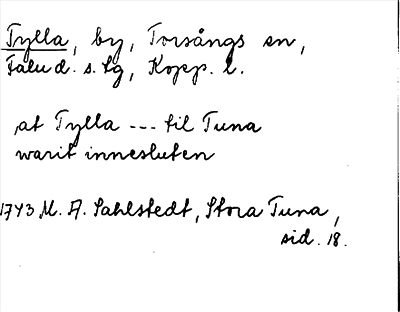 Tylla, by, Torsångs sn,
Falu d. s. lg, Kopp. l.
at Tylla --- til Tuna
warit innesluten
1743 M. A. Sahlstedt, Stora Tuna,
sid. 18.